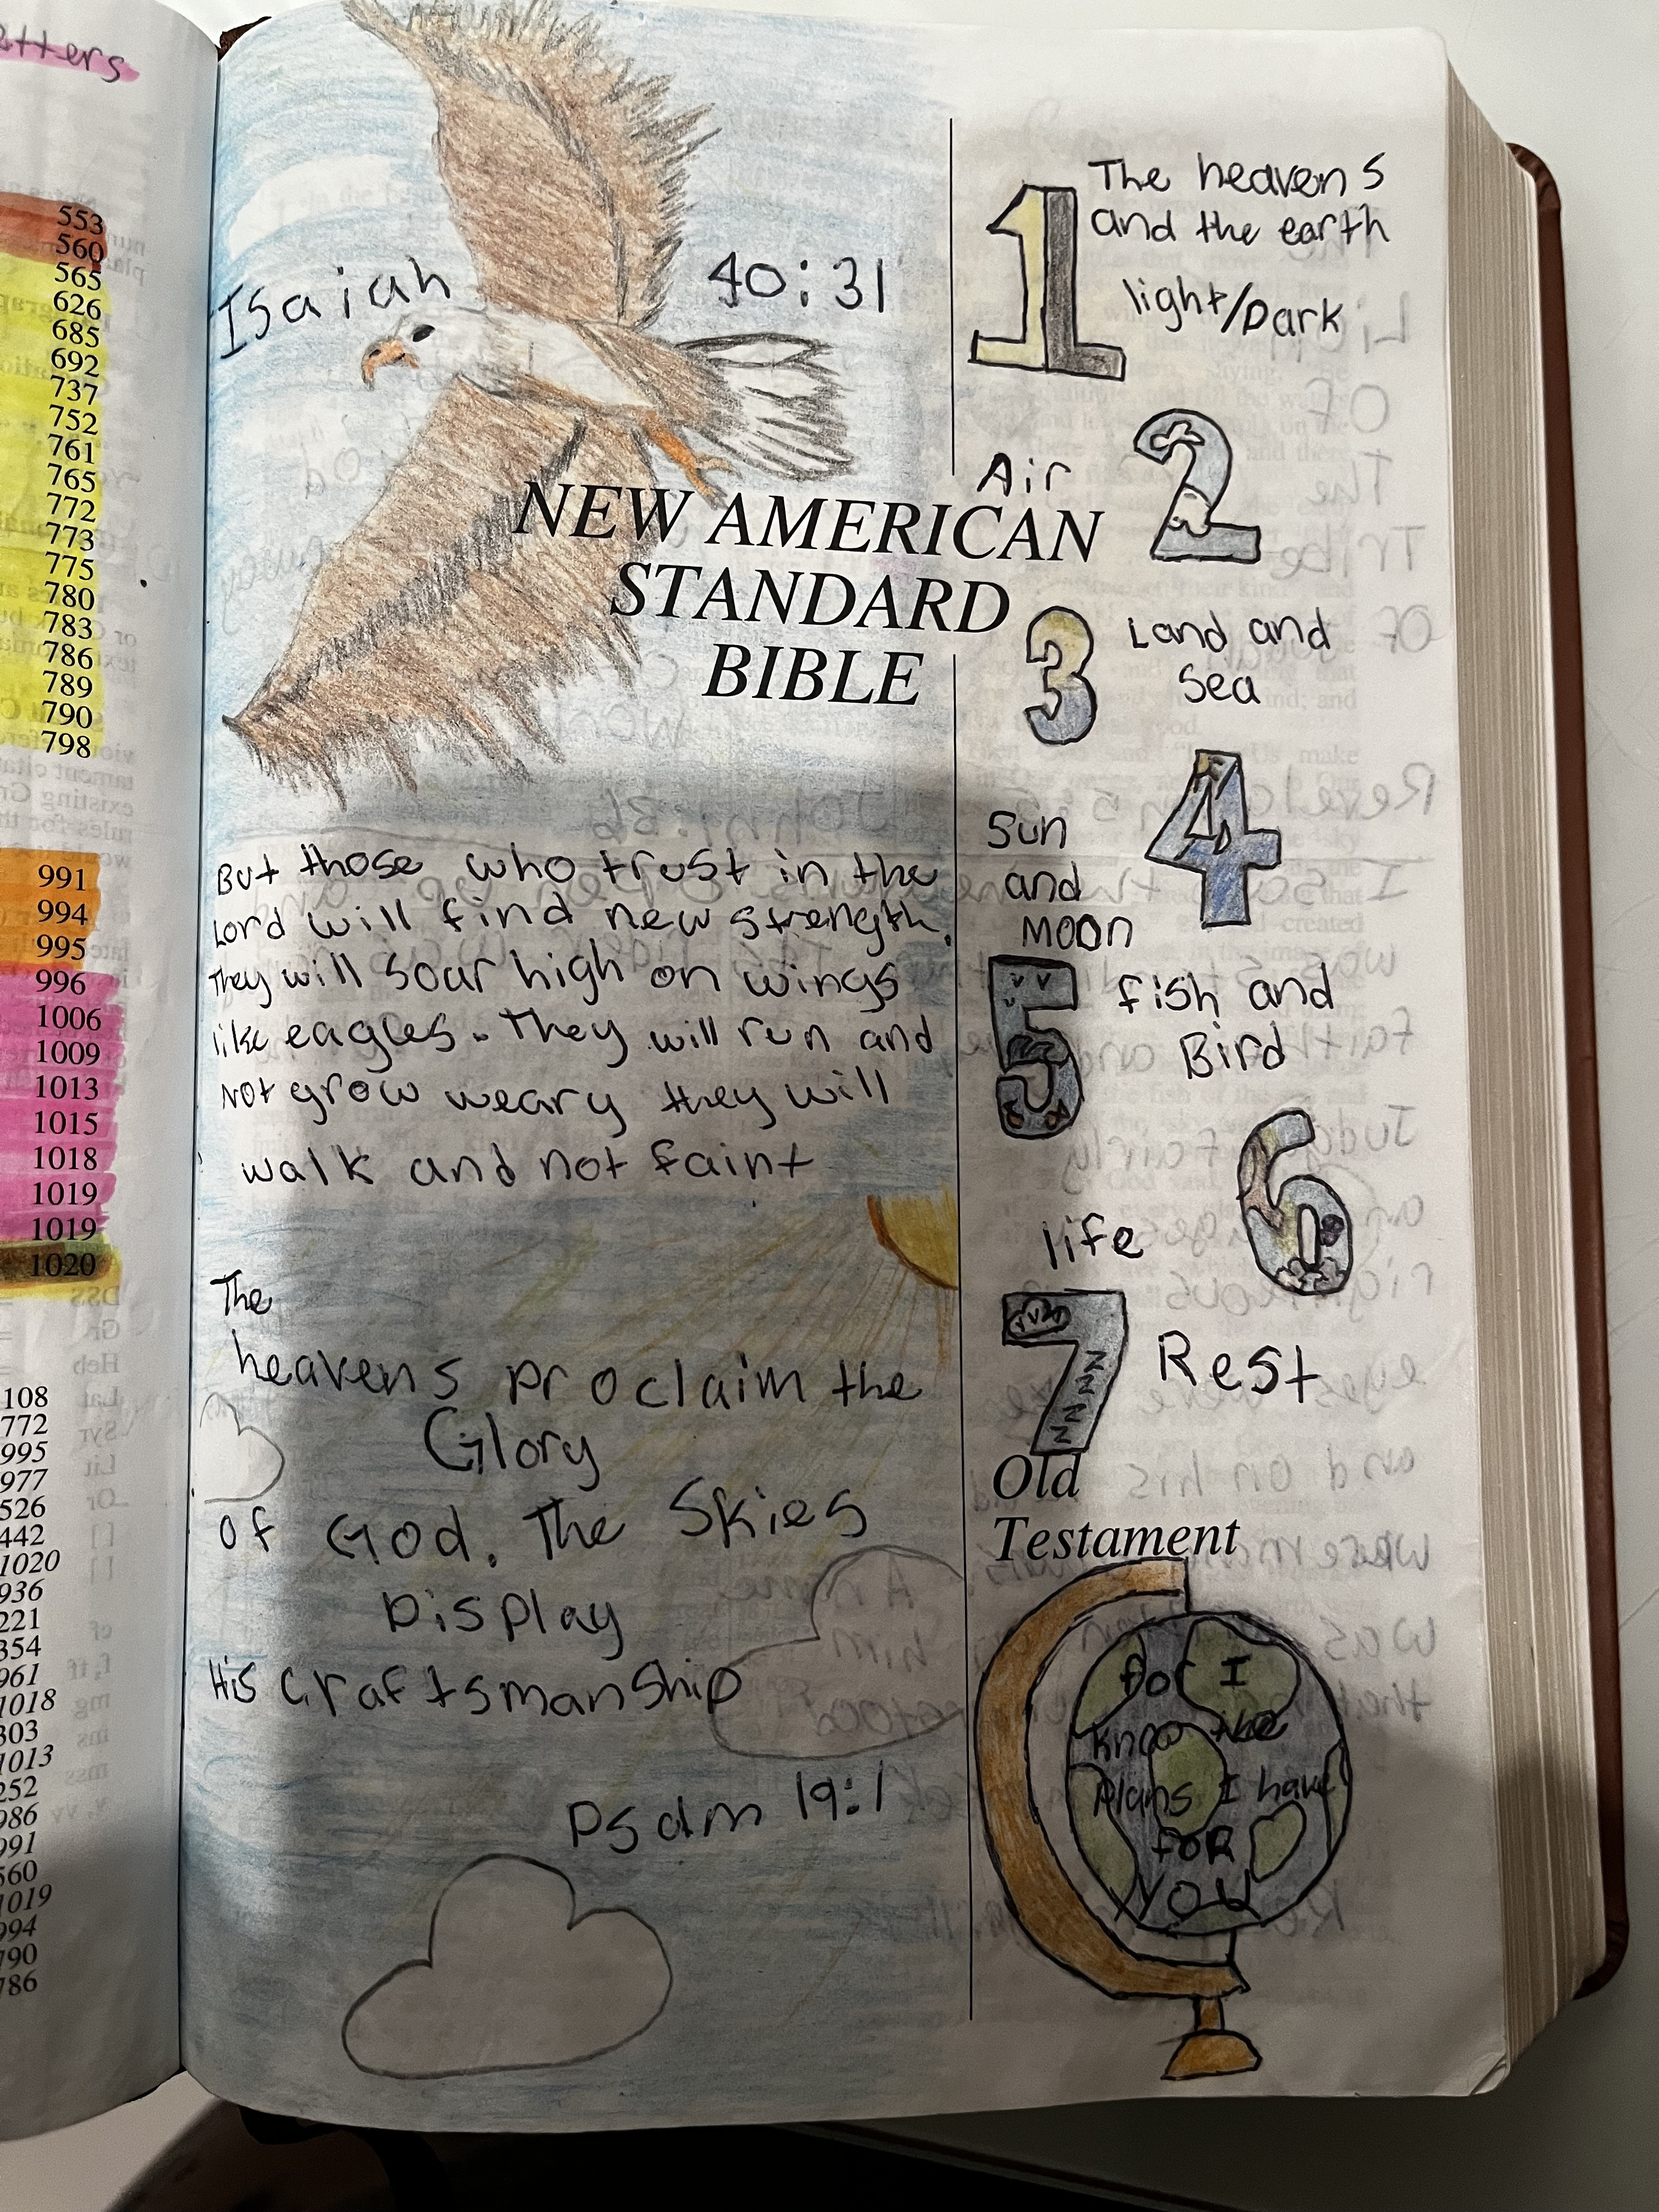 etters
553
560
565
626
685
692
737
752
761
765
772
773
775
780
783
786
789
790
798
991
994
995
996
1006
1009
1013
1015
1018
1019
1019
1020
108
772
995
977
526
442
1020
936
221
354
961
1018
303
1013
252
986
991
560
1019
994
790
786
Isaiah 40:31
NEW AMERICAN
STANDARD
BIBLE
But those who trust in the
Lord will find new strength.
They will soar high on wings
like eagles. They will run and
Not grow weary they will
walk and not faint
The
heavens proclaim the
Glory
of God. The Skies
Display
His craftsmanship
Psalm 19:1
1 The heavens
and the earth
light/Dark
Air 2
3 Land and
Sea
Sun 4
and
Moon
5 fish and
Bird
6
life
7 Rest
Z
Z
Z
Z
Old
Testament
for I
know the
Plans I have
foR
YOU